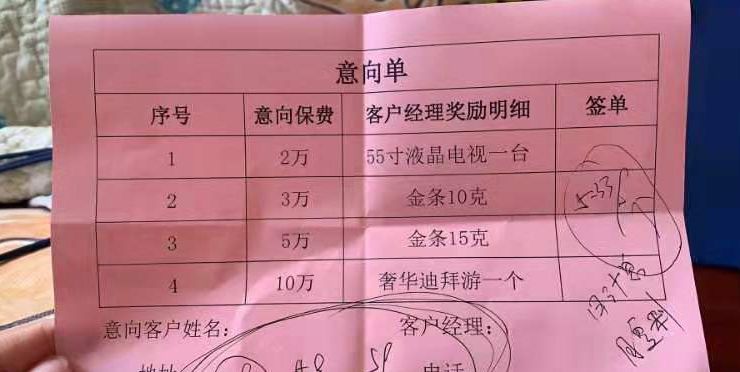 意向单
序号 意向保费 客户经理奖励明细 签单
1 2万 55寸液晶电视一台
2 3万 金条10克
3 5万 金条15克
4 10万 奢华迪拜游一个
意向客户姓名: 客户经理:
地址 电话